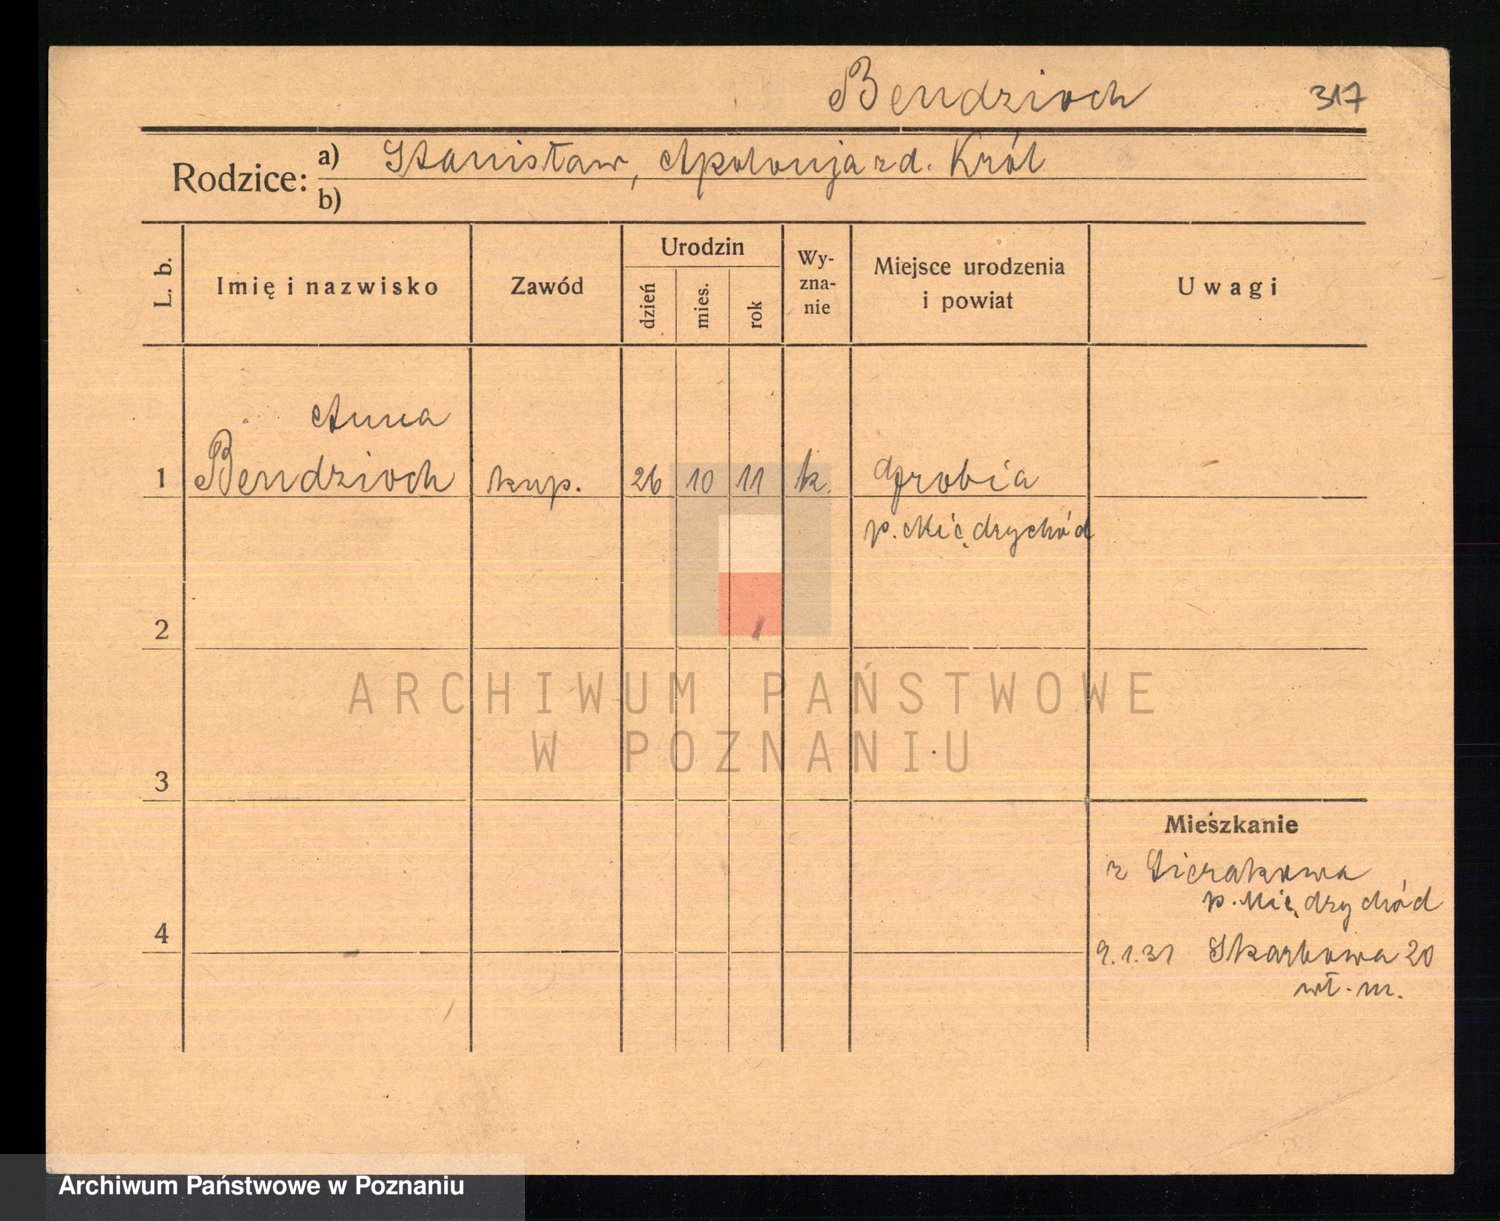 Bendzioch 317
Rodzice: a) Stanisław, Apolonja zd. Król
b)
L. b. Imię i nazwisko Zawód Urodzin dzień mies. rok Wy-zna-nie Miejsce urodzenia i powiat Uwagi
Anna
1 Bendzioch kup. 26 10 11 k. Grobia
p. Międzychód
2
ARCHIWUM PAŃSTWOWE
W POZNANIU
3
Mieszkanie
z Sierakowa
p. Międzychód
4
9.1.31 Skarbowa 20
wł. m.
Archiwum Państwowe w Poznaniu